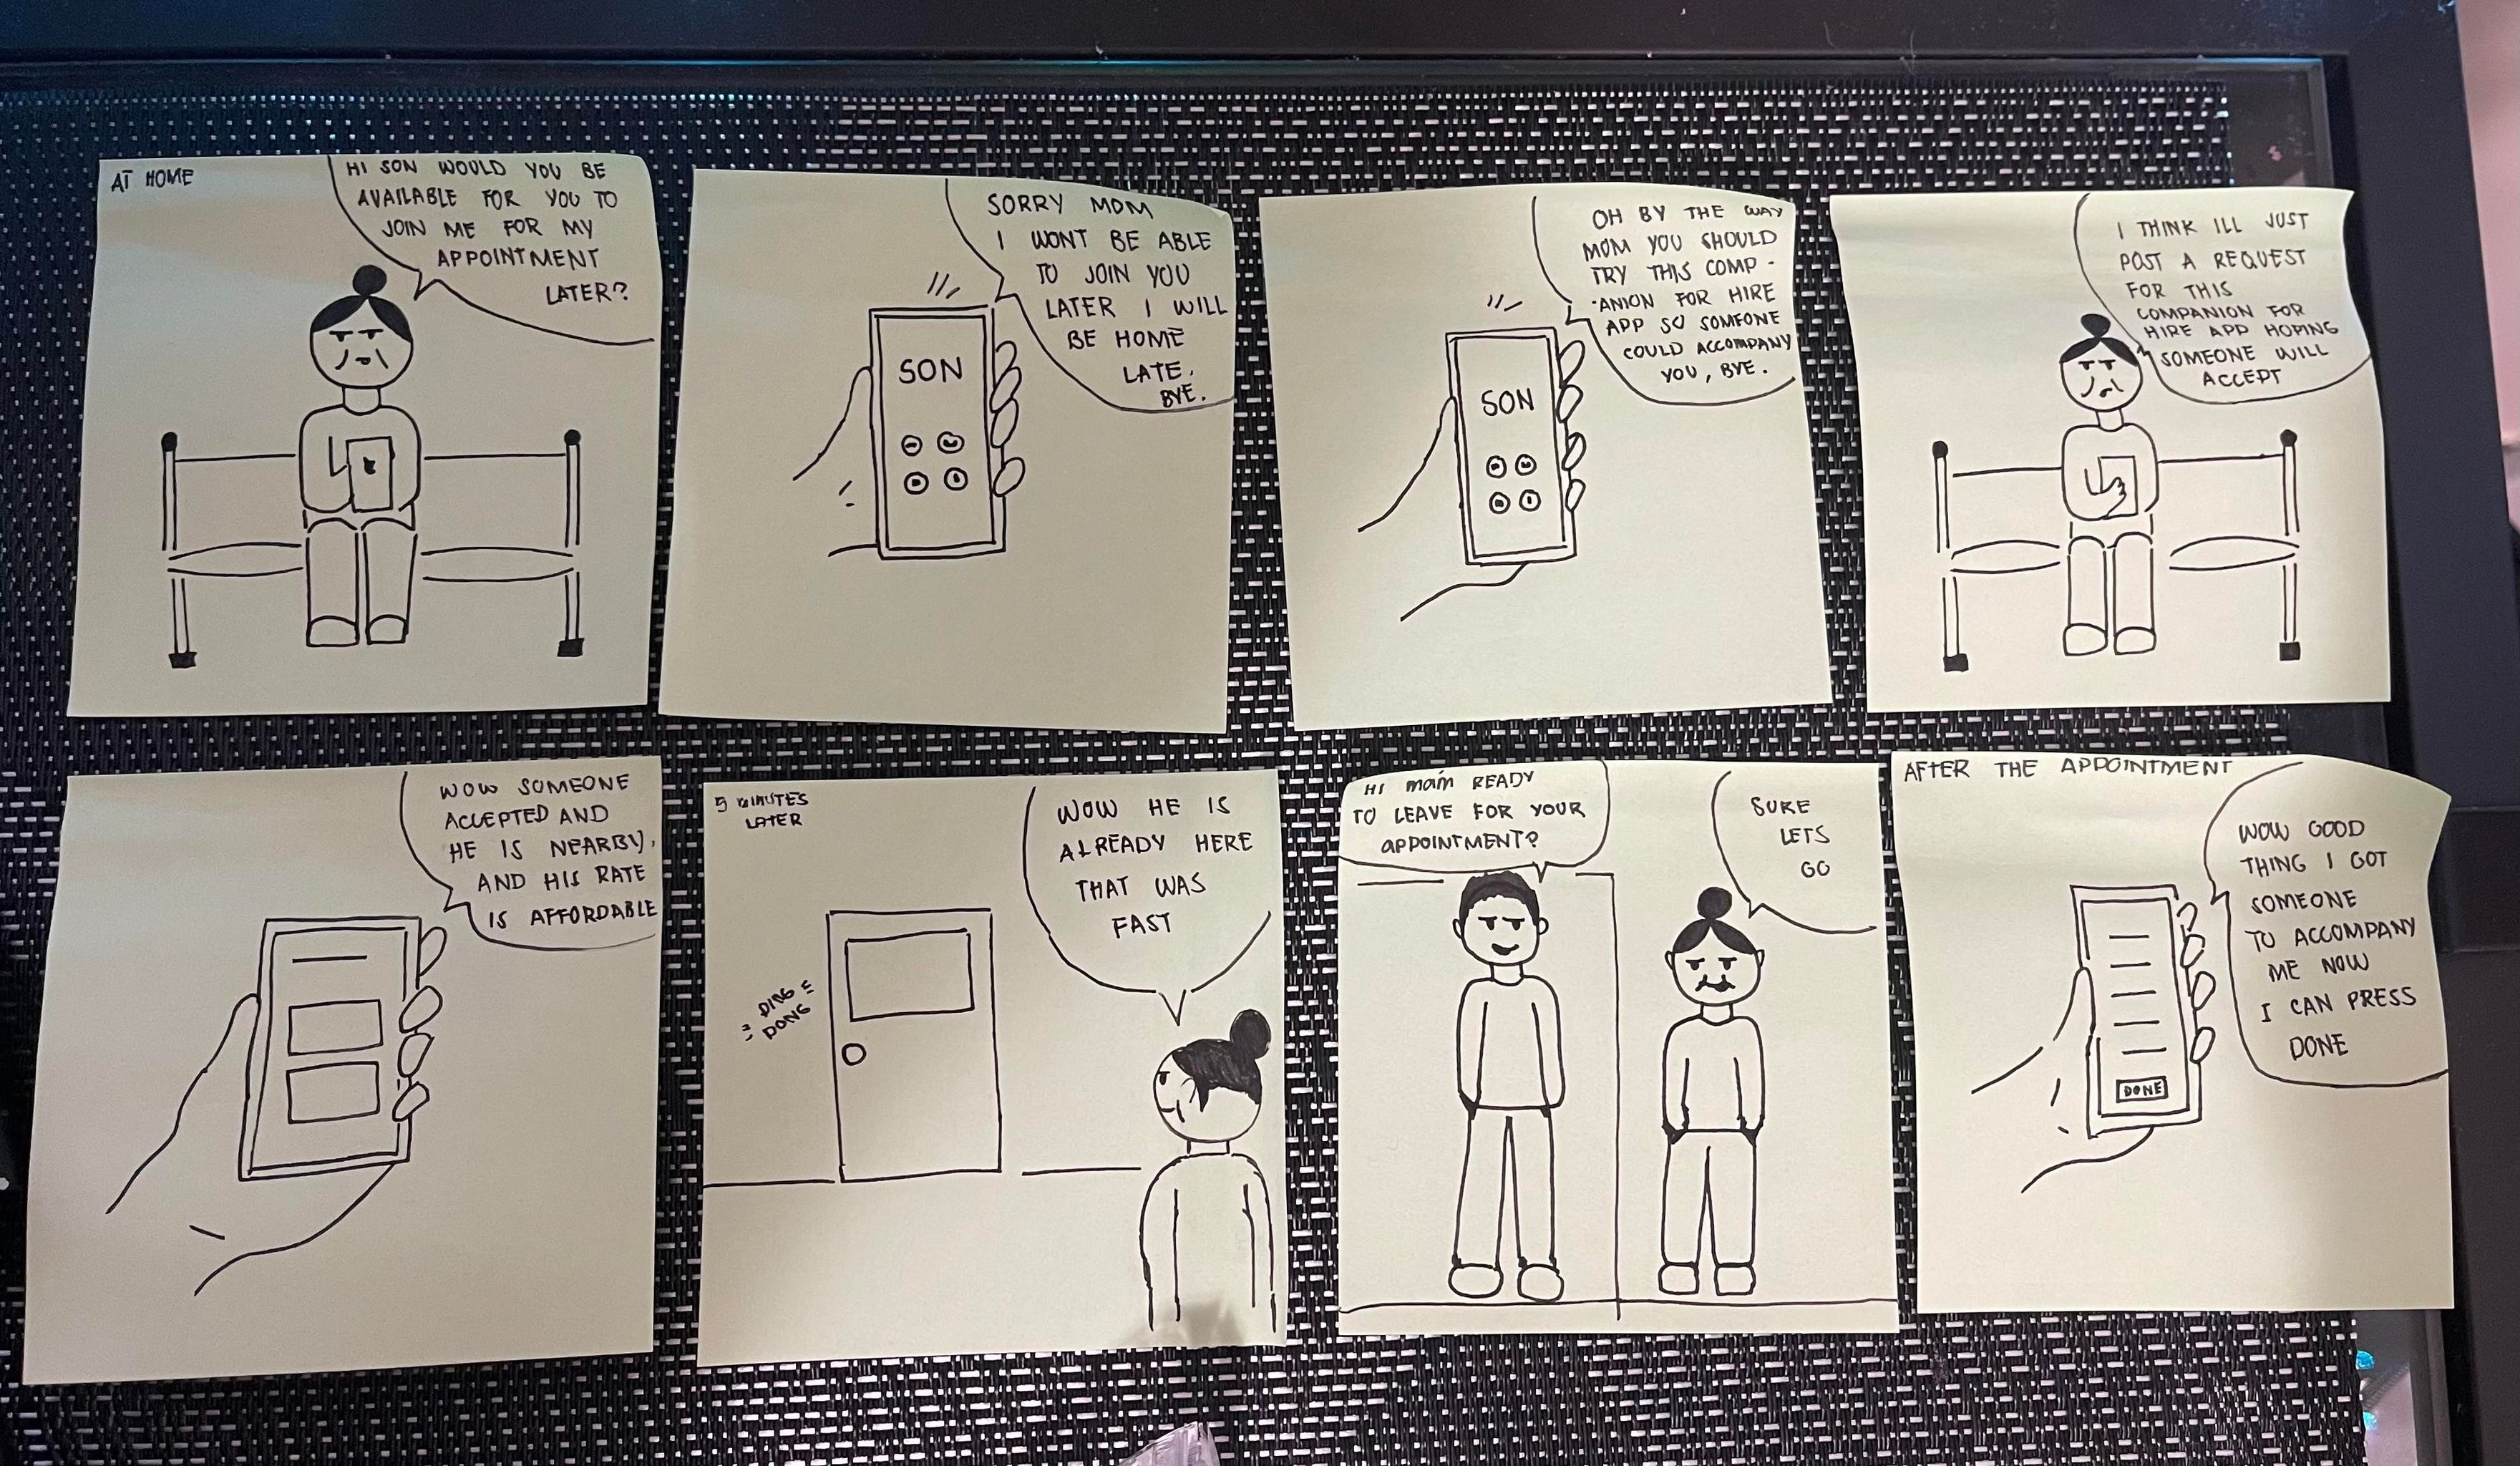 AT HOME
HI SON WOULD YOU BE
AVAILABLE FOR YOU TO
JOIN ME FOR MY
APPOINTMENT
LATER?
SORRY MOM
I WONT BE ABLE
TO JOIN YOU
LATER I WILL
BE HOME
LATE,
BYE.
SON
OH BY THE WAY
MOM YOU SHOULD
TRY THIS COMP-
-ANION FOR HIRE
APP SO SOMEONE
COULD ACCOMPANY
YOU, BYE.
SON
I THINK ILL JUST
POST A REQUEST
FOR THIS
COMPANION FOR
HIRE APP HOPING
SOMEONE WILL
ACCEPT
WOW SOMEONE
ACCEPTED AND
HE IS NEARBY,
AND HIS RATE
IS AFFORDABLE
5 MINUTES
LATER
WOW HE IS
ALREADY HERE
THAT WAS
FAST
DING
DONG
HI mam READY
TO LEAVE FOR YOUR
APPOINTMENT?
SURE
LETS
GO
AFTER THE APPOINTMENT
WOW GOOD
THING I GOT
SOMEONE
TO ACCOMPANY
ME NOW
I CAN PRESS
DONE
DONE